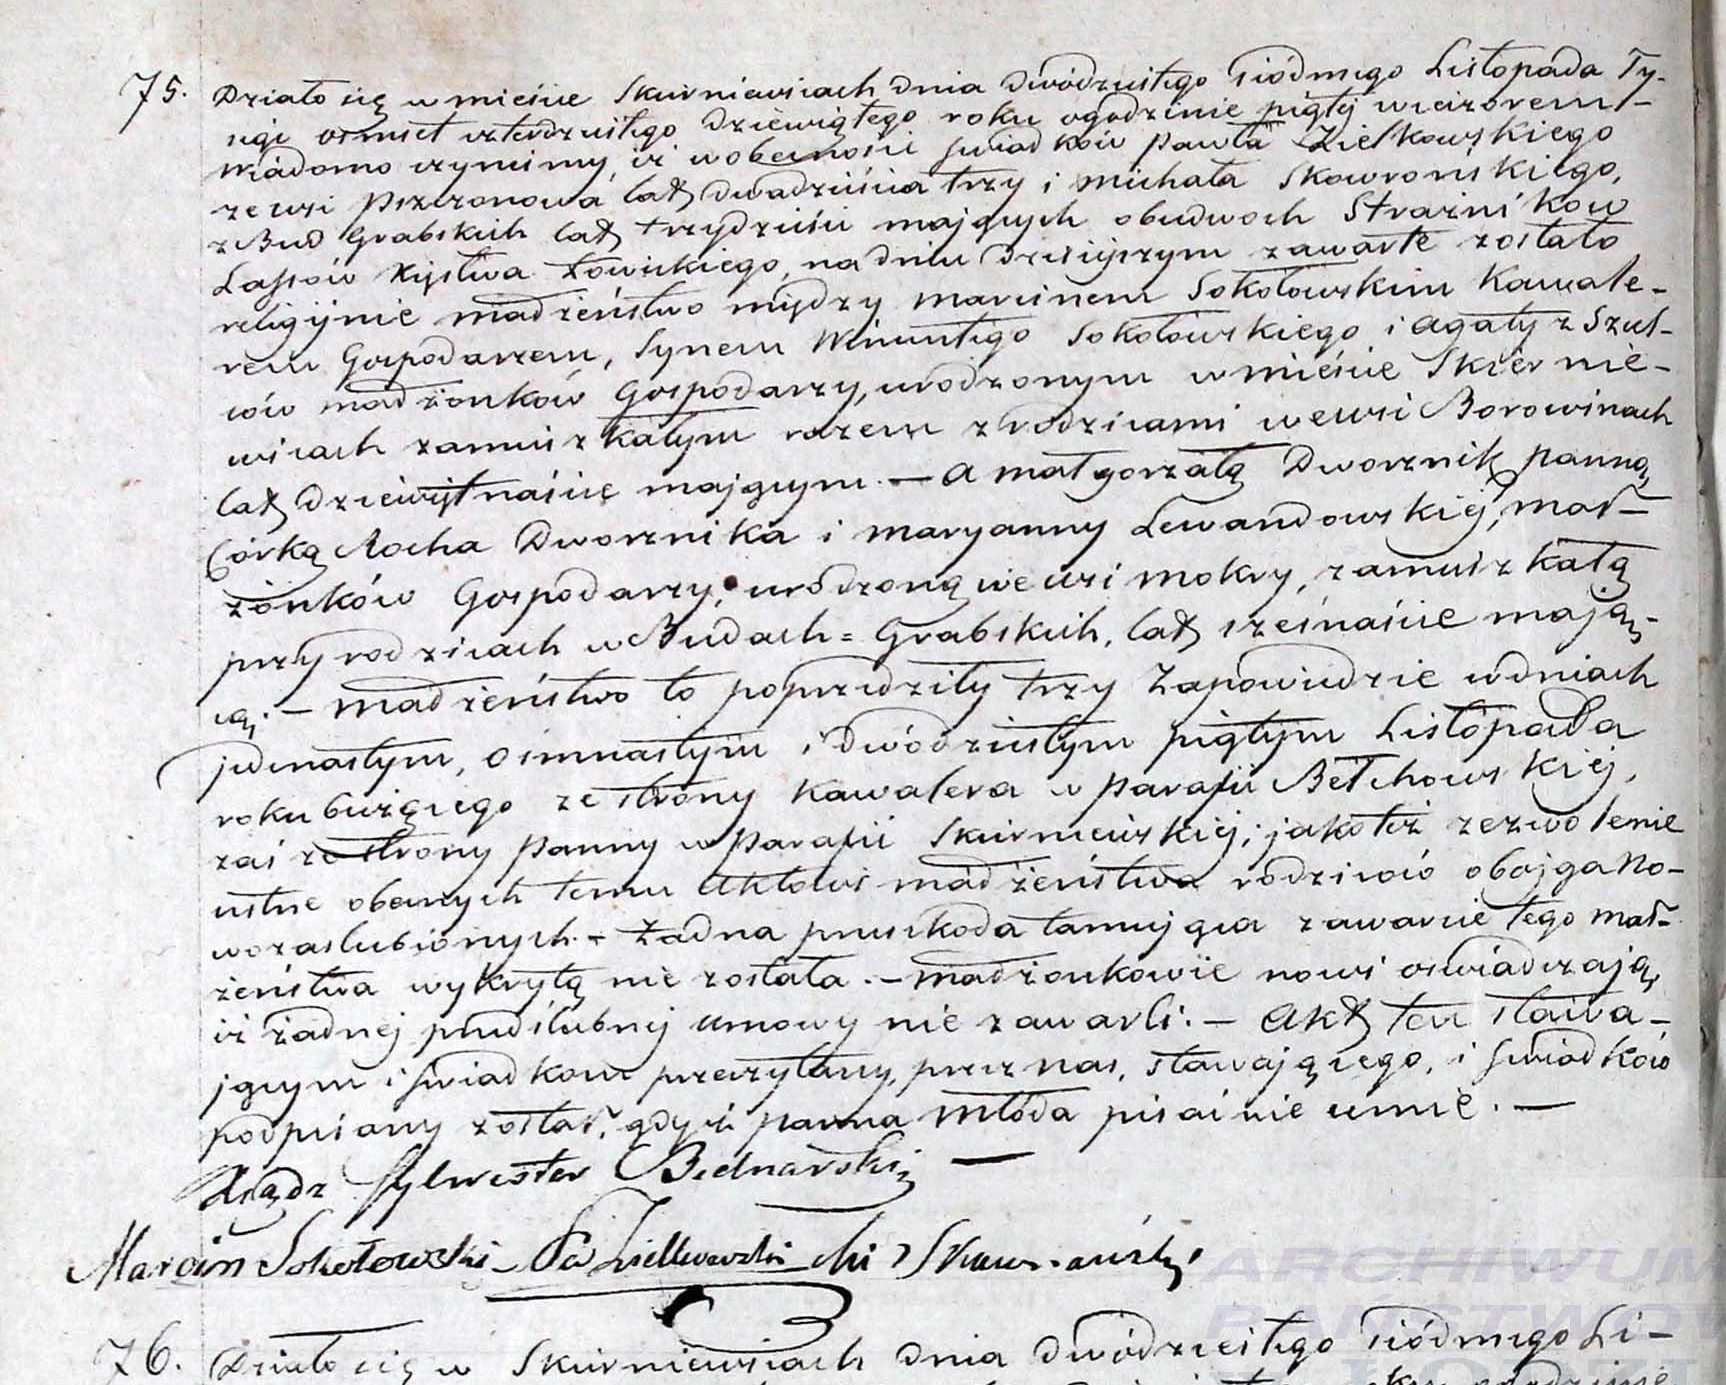 75. Działo się w mieście Skierniewicach dnia dwódziestego siódmego Listopada Ty-
siąc ośmset czterdziestego dziewiątego roku ogodzinie piątej wieczorem -
wiadomo czynimy, iż wobecności świadków Pawła Zielkowskiego
ze wsi Pszczonowa lat dwadzieścia trzy i Michała Skowrońskiego,
z Bud Grabskich lat trzydzieści mających obudwoch Strażników
Lassów Xięstwa Łowickiego, na dniu dzisiejszym zawarte zostało
religijnie małżeństwo między Marcinem Sokołowskim Kawale-
rem Gospodarzem, Synem Wincentego Sokołowskiego i Agaty z Szul-
ców małżonków Gospodarzy, urodzonym w mieście Skiernie-
wicach zamieszkałym razem z rodzicami we wsi Borowinach
lat dziewiętnaście mającym. — A Małgorzatą Dwornik panną
Córką Rocha Dwornika i Maryanny Lewandowskiej, mał-
żonków Gospodarzy, urodzoną we wsi Mokry, zamieszkałą
przy rodzicach w Budach = Grabskich, lat szesnaście mają-
cą. — Małżeństwo to poprzedziły trzy Zapowiedzie w dniach
jedenastym, osimnastym i dwódziestym piątym Listopada
roku bieżącego ze strony Kawalera w Parafii Bełchowskiej,
zaś ze strony Panny w Parafii Skierniewskiej; jakoteż zezwolenie
ustne obecnych temu Aktowi małżeństwa rodziców obojga No-
wozaslubionych. - Żadna przeszkoda tamująca zawarcie tego mał-
żeństwa wykrytą nie została. — Małżonkowie nowi oswiadczają,
iż żadnej przedślubnej umowy nie zawarli. — Akt ten stawa-
jącym i świadkom przeczytany, przez nas, stawającego, i świadków
podpisany został, gdyż panna młoda pisać nie umie. —
Xiądz Sylwester Bednarski —
Marcin Sokołowski Pa Zielkowski Mi Skowroński
76. Działo się w Skierniewicach dnia dwódziestego siódmego Li-
ARCHIWUM
PAŃSTWO